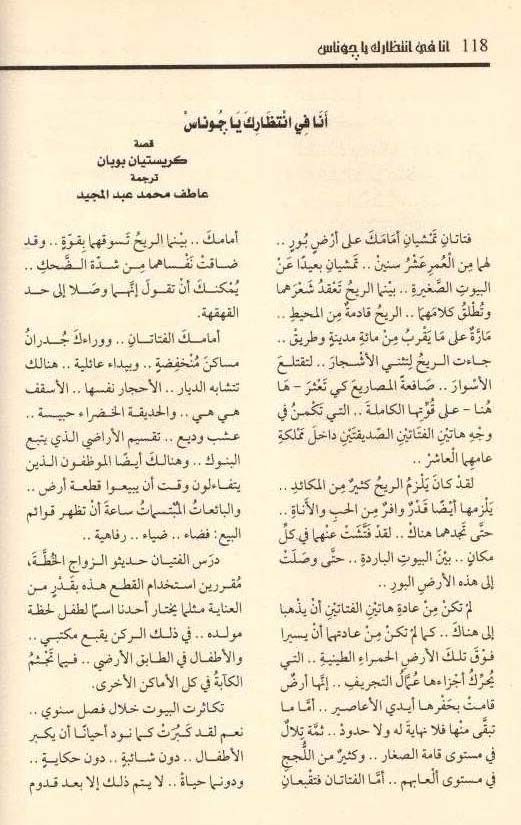 118 انا في انتظارك يا جوناس
أنَا فِي انْتظَارِكَ يَا جُونَاسْ
قصة
كريستيان بوبان
ترجمة
عاطف محمد عبد المجيد
فتاتانِ تمْشيانِ أمَامَكَ على أرْضٍ بُورٍ ..
لهما مِنَ الْعُمرِ عَشْرُ سنينْ .. تمْشيانِ بعيدًا عَنْ
البيوتِ الصَّغيرةِ .. بيْنما الريحُ تَعْقدُ شَعْرَهما
وتُطْلقُ كلامَهُما .. الريحُ قادمةٌ مِنَ المحيطِ ..
مَارَّةٌ على مَا يَقْربُ مِنْ مائةِ مدينةٍ وطريقْ ..
جاءت الريحُ لتثْني الأشْجارَ .. لتقتلعَ
الأسْوارَ .. صَافعةً المصاريعَ كي تَعْثرَ - هَا
هُنا - على قُوَّتِها الكاملةَ .. التي تَكْمنُ في
وجْهِ هاتيْنِ الفتاتيْنِ الصَّديقتيْنِ داخلَ مَمْلكةِ
عامهما الْعاشرْ ..
لقدْ كانَ يَلْزمُ الريحَ كثيرٌ مِنَ المكائدِ ..
يَلْزمها أيْضًا قَدْرٌ وافرٌ مِنَ الحبِ والأناةِ ..
حتَّى تجدهما هناكْ .. لقدْ فَتَّشَتْ عنهما في كلِّ
مكانٍ .. بيْنَ البيوتِ الباردةِ .. حتَّى وصَلَتْ
إلى هذه الأرضِ البورِ ..
لمْ تكنْ مِنْ عادةِ هاتيْنِ الفتاتيْنِ أنْ يذهبا
إلى هناكْ .. كما لمْ تكنْ مِنْ عادتهما أنْ يسيرا
فوْقَ تلكَ الأرضِ الحمراءِ الطينيةِ .. التي
يُحرِّكُ أجزاءها عُمَّالُ التجريفِ .. إنَّها أرضٌ
قامتْ بحَفْرها أيدي الأعاصيرِ .. أمَّا ما
تبقَّى منها فلا نهايةَ له ولا حدودْ .. ثمَّةَ تِلالٌ
في مستوى قامة الصغار .. وكثيرٌ من اللُّججِ
في مستوى ألعابهم .. أمَّا الفتاتان فتقْبعانِ
أمامكَ .. بيْنما الريحُ تسوقهما بقوَّةٍ .. وقد
ضاقتْ نَفْساهما مِنْ شدَّة الضَّحكِ ..
يُمْكنكَ أنْ تقولَ إنَّهما وصَلا إلى حد
القهقهة.
أمامكَ الفتاتانِ .. ووراءكَ جُدرانُ
مساكنَ مُنْخفِضةٍ .. وبيداء عائلية .. هنالك
تتشابه الديار .. الأحجار نفسها .. الأسقف
هي هي .. والحديقة الخضراء حبيسة ..
عشب وديع .. تقسيم الأراضي الذي يتبع
البنوك .. وهنالكَ أيضًا الموظفون الذين
يتفاءلون وقت أن يبيعوا قطعة أرض ..
والبائعاتُ المُبْتسماتُ ساعةَ أنْ تظهر قوائم
البيع : فضاء .. ضياء .. رفاهية ..
درَس الفتيان حديثو الزواج الخُطَّةَ،
مُقررين استخدام القطع هذه بقَدْرٍ من
العناية مثلما يختار أحدنا اسمًا لطفل لحظة
مولده .. في ذلك الركن يقبع مكتبي ..
والأطفال في الطابق الأرضي .. فيما تَجْثمُ
الكآبةُ في كل الأماكن الأخرى.
تكاثرت البيوت خلال فصل سنوي ..
نعم لقد كَبُرَتْ كما نود أحيانًا أن يكبر
الأطفال .. دون شائبةٍ .. دون حكايةٍ ..
ودونما حياةٌ .. لا يتم ذلك إلا بعد قدوم